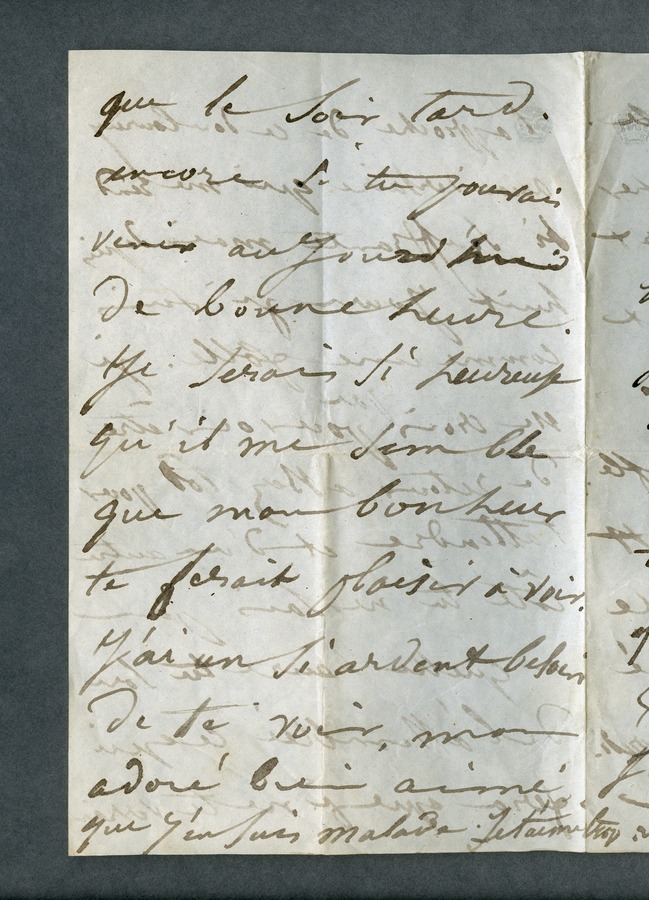 que le soir tard.
encore si tu pouvais
venir aujourd'hui
de bonne heure.
Je serais si heureuse
qu'il me semble
que mon bonheur
te ferait plaisir à voir.
J'ai un si ardent besoin
de te voir, mon
adoré bien aimé
que j'en suis malade. Je t'aime trop.